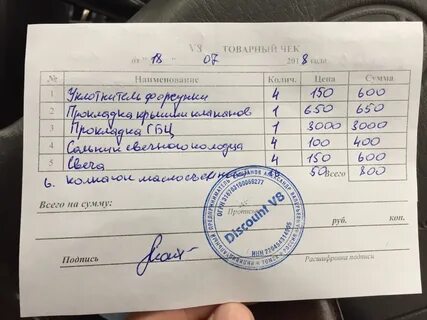 V8 ТОВАРНЫЙ ЧЕК
от "18" 07 2018 года
№ Наименование Колич. Цена Сумма
1 Уплотнитель форсунки 4 150 600
2 Прокладка крышки клапанов 1 650 650
3 Прокладка ГБЦ 1 3000 3000
4 Сальник свечного колодца 4 100 400
5 Свеча 4 150 600
6. колпачок маслосъемный 50 Всего 800
Всего на сумму:
руб. коп.
Discount V8
Подпись Расшифровка подписи